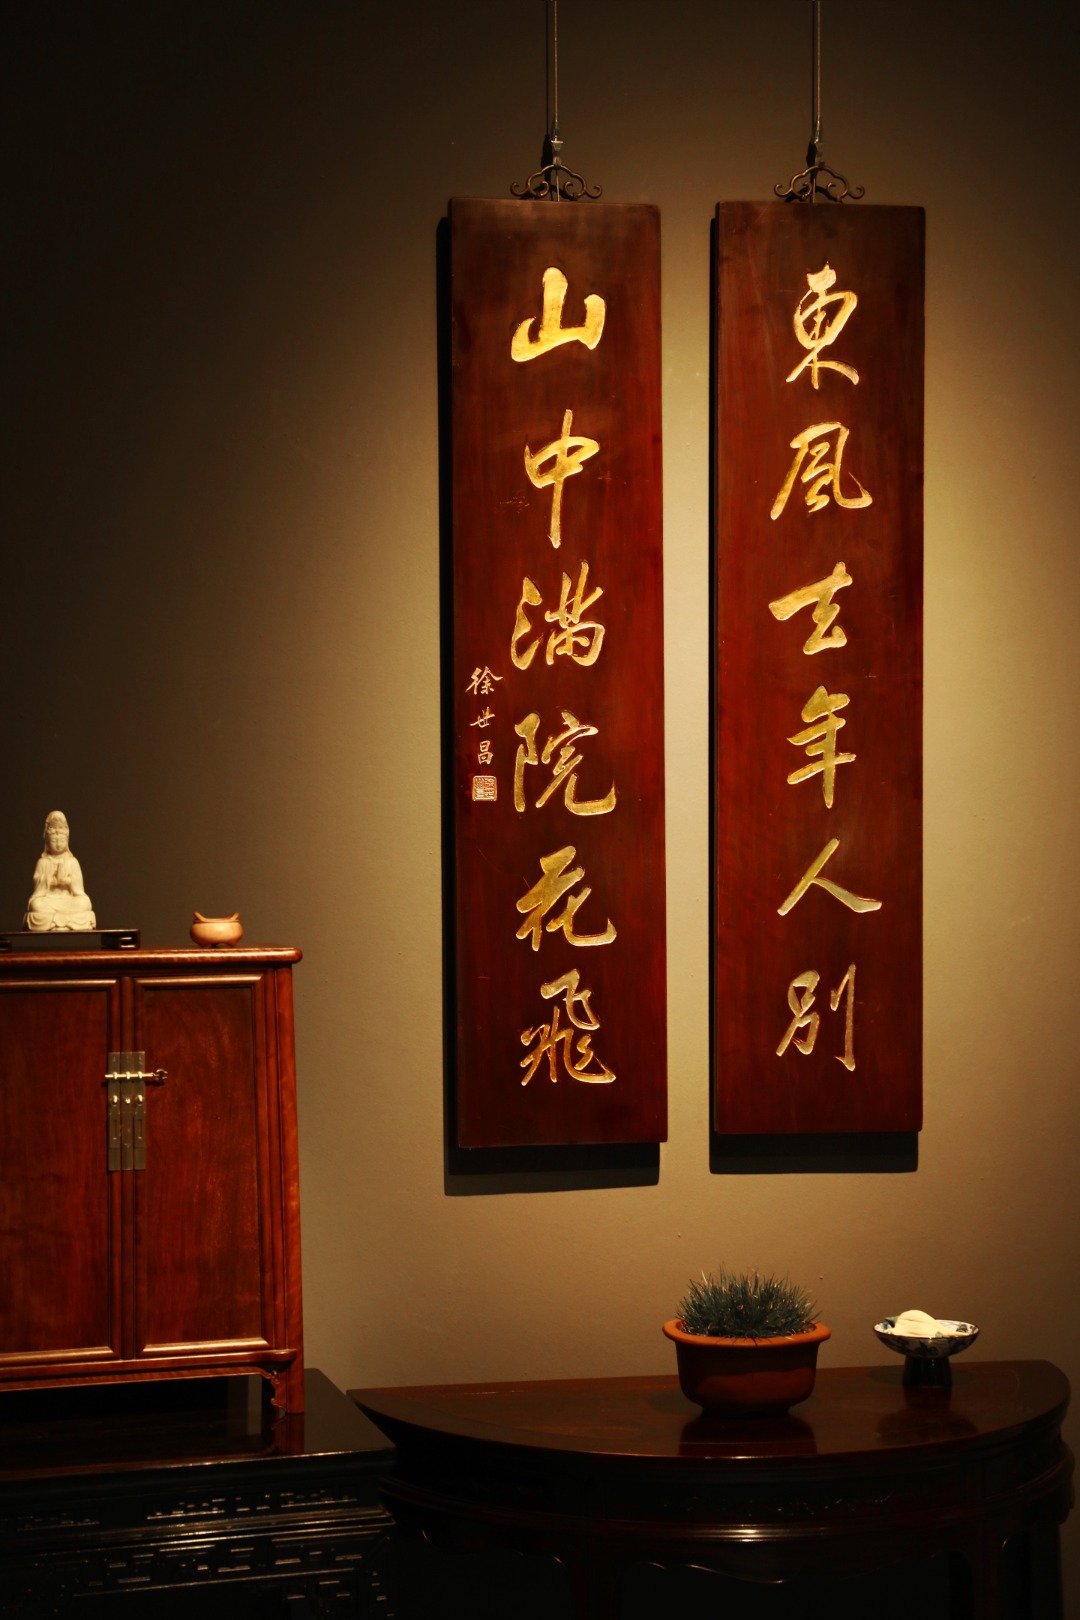 東風去年人別
山中满院花飛
徐世昌